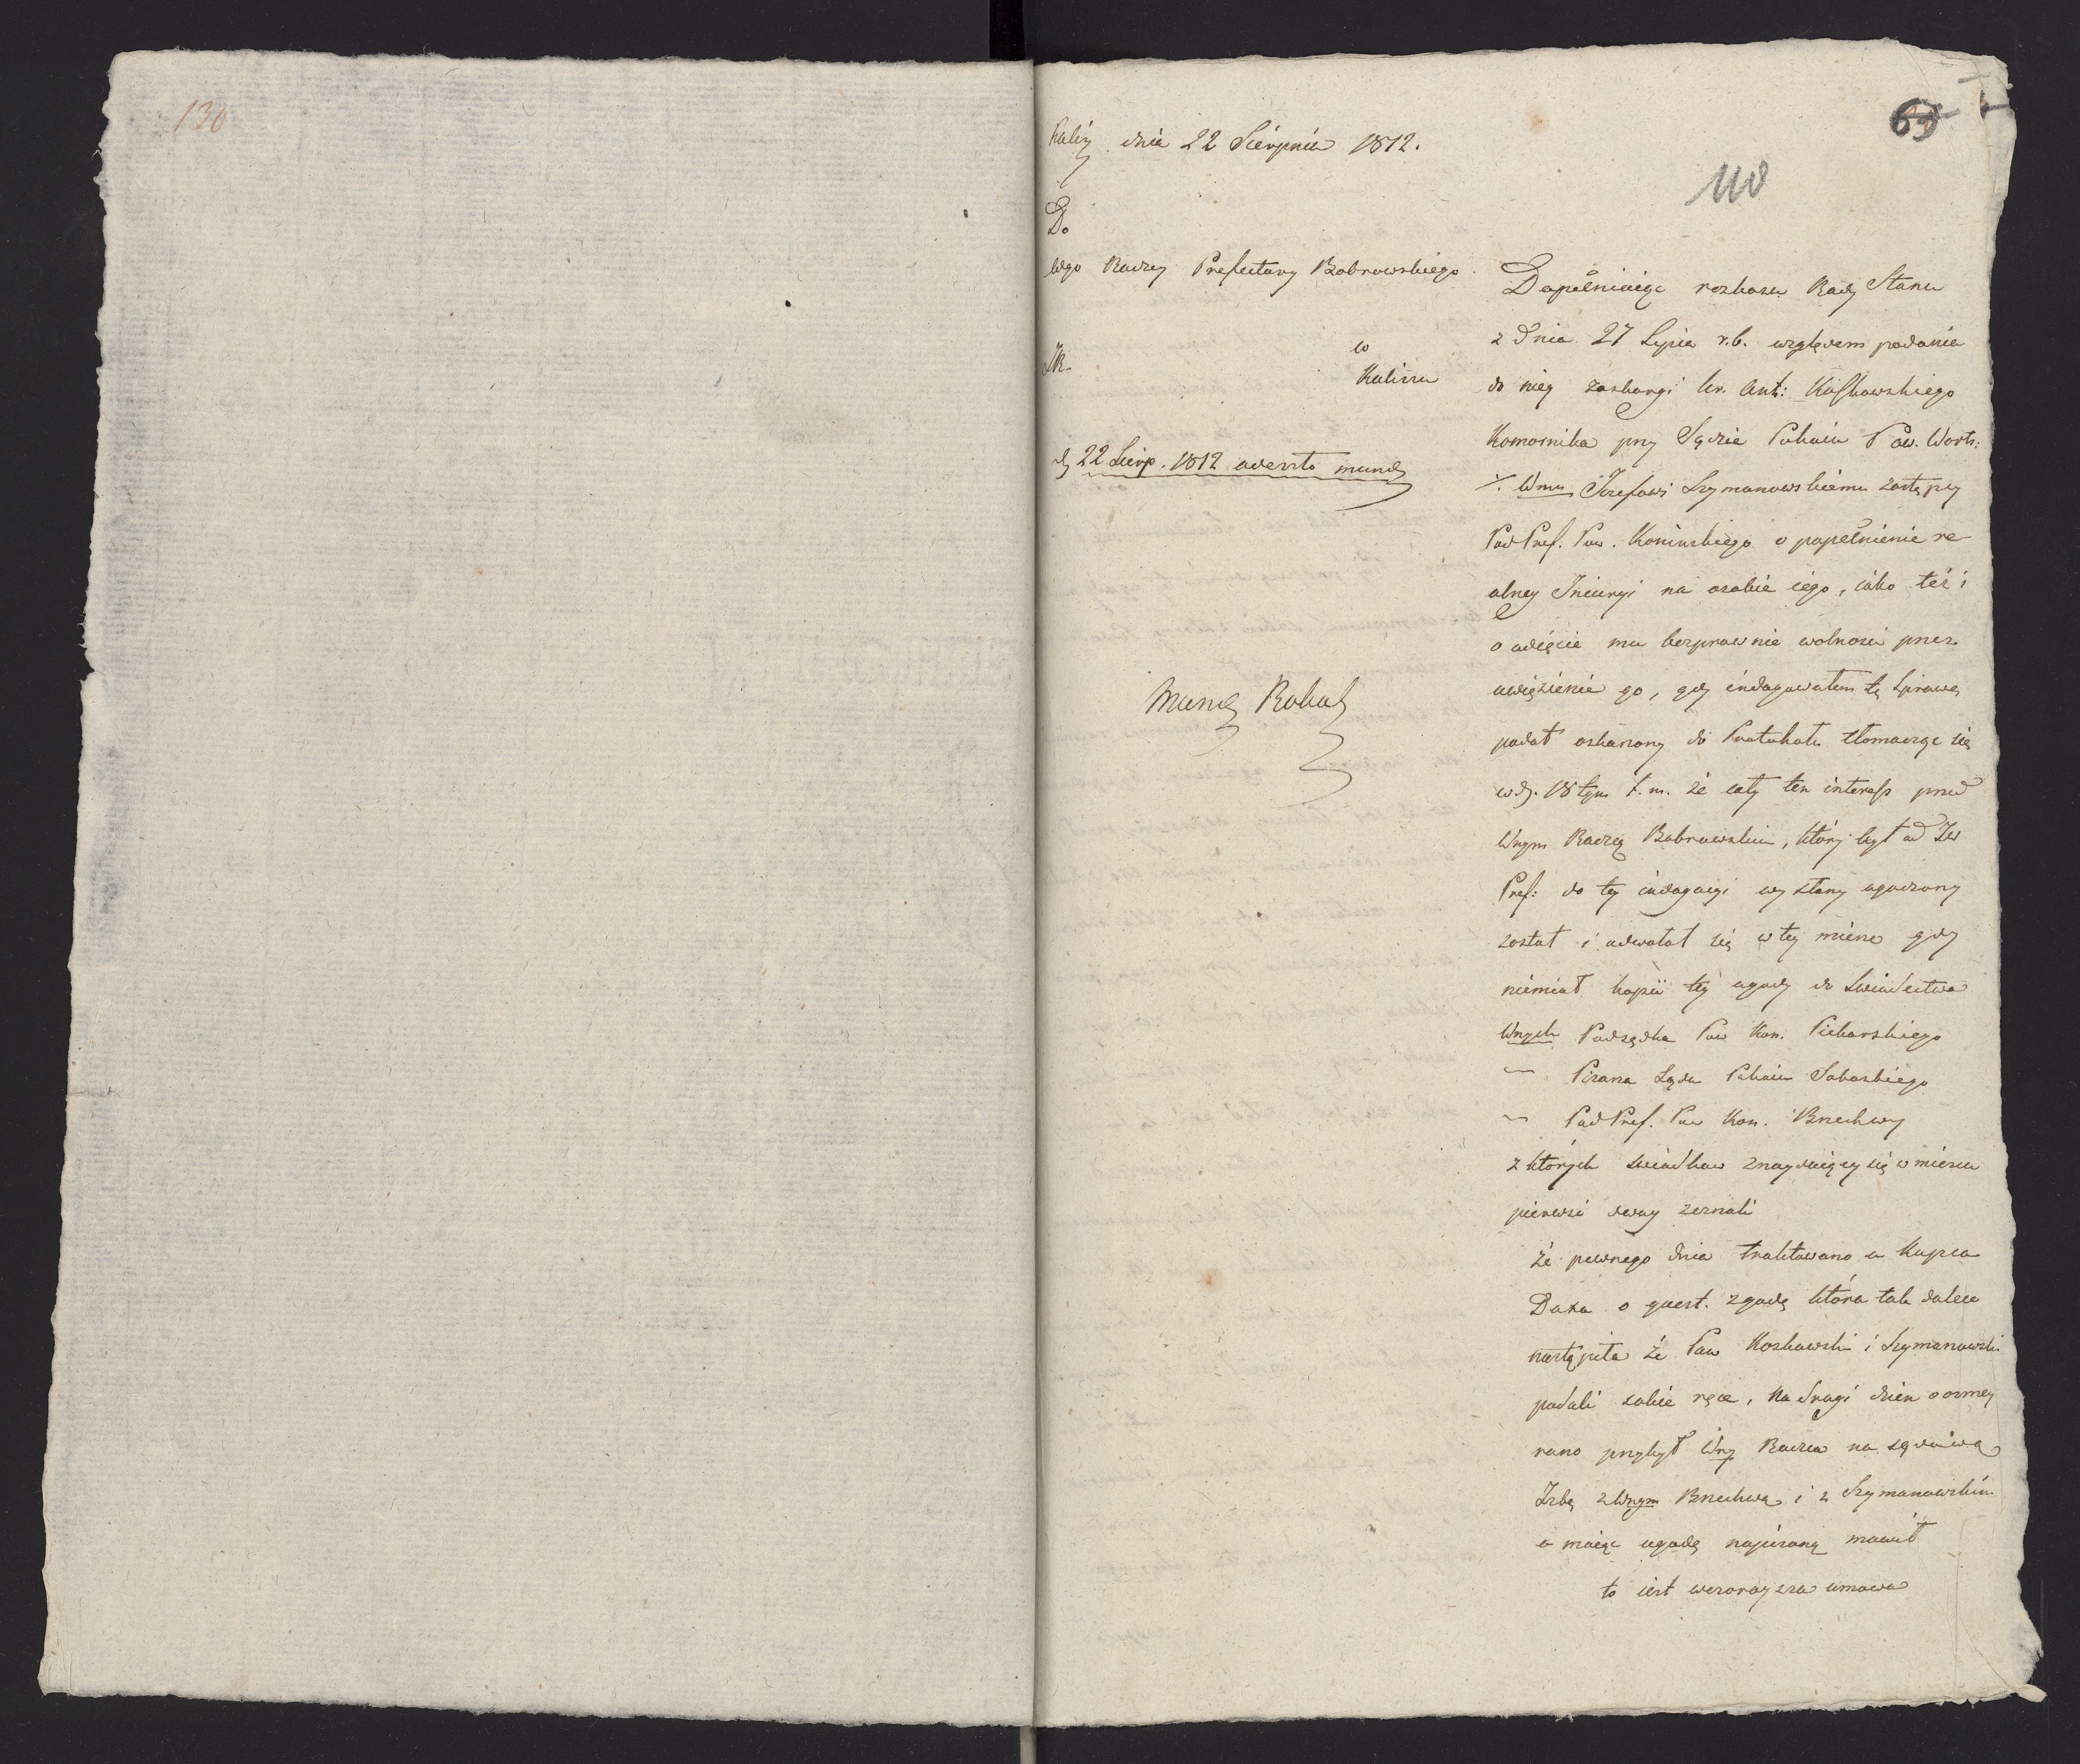 130
69
110
Kalisz dnia 22 Sierpnia 1812.
Do
Wgo Radzcy Prefectury Bobrowskiego
w
Kaliszu
d. 22 Sierp. 1812 odeszło mund
Dopełniaiąc rozkazu Rady Stanu
z Dnia 27 Lipca r.b. względem podania
do niey zaskargi Ur. Ant: Koszkowskiego
Komornika przy Sądzie Pokoiu Pow. Wart:
Wmu Jozefowi Szymanowskiemu zastępcy
PodPref. Pow. Konińskiego o popełnienie re-
alney Iniuryi na osobie iego, iako też i
o odięcie mu bezprawnie wolności przez
uwięzienie go, gdy indagowałem tę sprawę
podał oskarżony do Protokołu tłomacząc się
w d. 18tym t.m. że cały ten interess przed
Wnym Radzcą Bobrowskim, który był od
Pref: do tey indagacyi wysłany ugodzony
został i odwołał się w tey mierze gdy
niemiał kopii tey ugody do Swiadectwa
Wnych Podsędka Pow Kon. Piekarskiego
— Pisarza Sądu Pokoiu Sokolskiego
— PodPref. Pow Kon. Brzechwy
z których swiadków znayduiący się w mieyscu
pierwsi dway zeznali
że pewnego dnia traktowano u Kupca
o quest. zgodę która tak daleco
nastąpiła że Pan Koszkowski i Szymanowski
podali sobie ręce, na drugi dzień o osmey
rano przybył Wny Radzca na sądową
Izbę z Wnym Brzechwą i z Szymanowskim
a maiąc ugodę napisaną mówił
to iest wczoraysza umowa